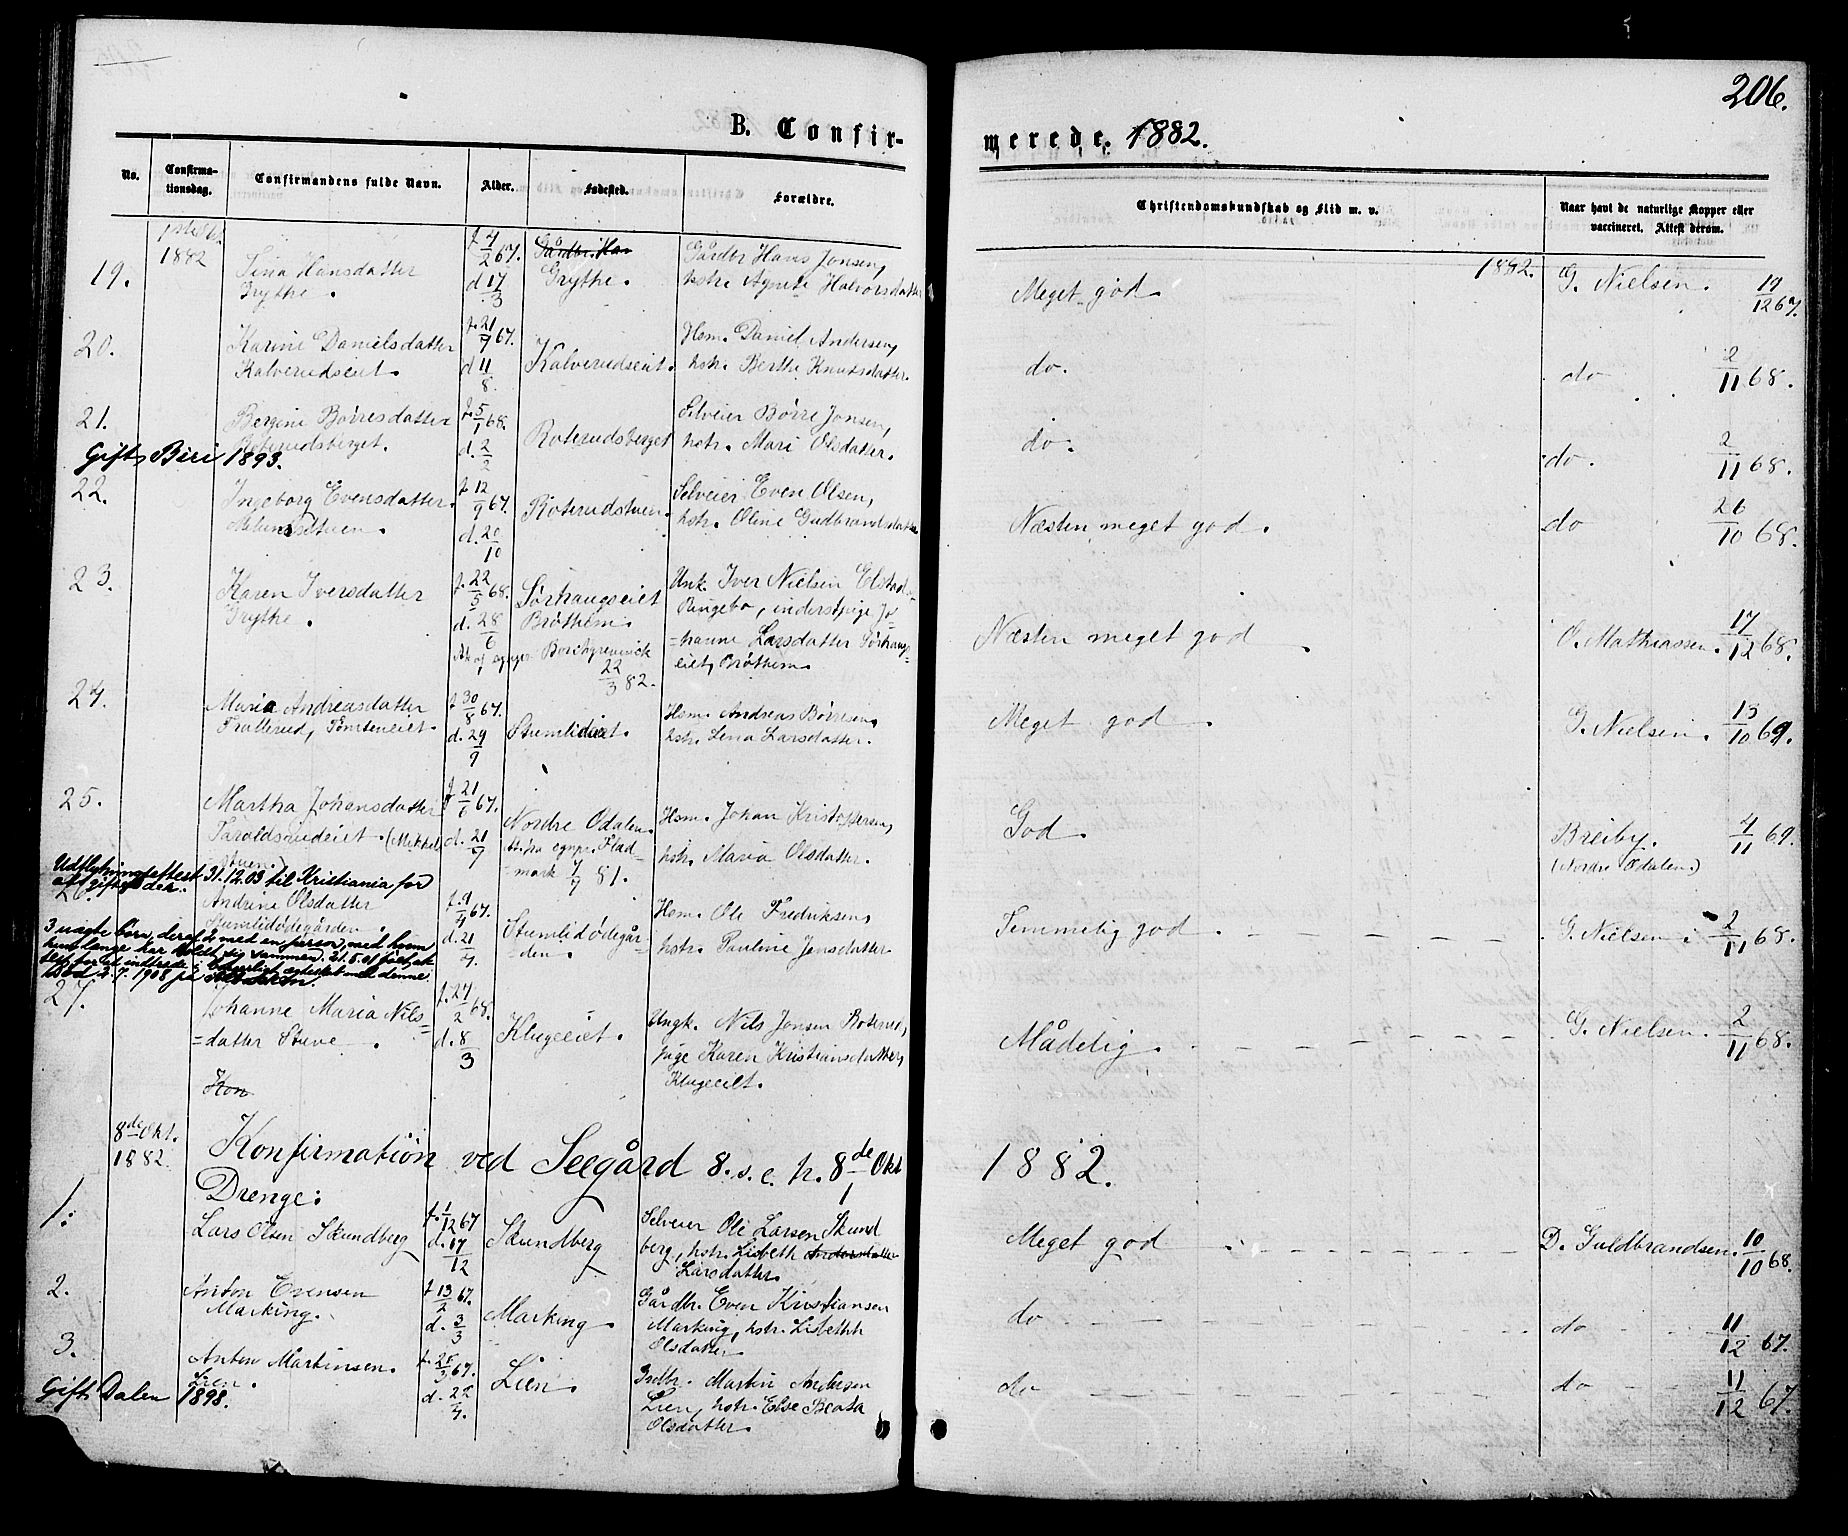 206.
B. Confir-
merede. 1882.
No.
Confirma-
tionsdag.
Confirmandens fulde Navn.
Alder.
Fødested.
Forældre.
Christendomskundskab og Flid m. v.
Naar havt de naturlige Kopper eller
vaccineret. Attest derom.
1882
1882.
19.
Hansdatter
Grythe.
f. 4/2 67.
d 17/3
Gårdbr. Han
Grythe.
Gårdbr Hans Jonsen,
hstr. Agnete Halvorsdatter
Meget god
G. Nielsen. 19/12 67.
20.
Karine Danielsdatter
Kalverudseiet.
f. 21/7 67.
d 11/8.
Kalverudseiet.
Hsm. Daniel Andersen,
hstr. Berthe Knutsdatter.
do.
do 2/11 68.
21.
Bergine Børresdatter
Roterudsberget.
Gift, Biri 1893.
f. 5/1 68.
d. 2/2
Roterudsberget
Selveier Børre Jonsen,
hstr. Mari Olsdatter.
do.
do. 2/11 68.
22.
Ingeborg Evensdatter.
f. 12/9 67.
d. 20/10
Roterudstuen.
Selveier Even Olsen,
hstr. Oline Gudbrandsdatter
Næsten meget god.
do 26/10 68.
23.
Karen Iversdatter
Grythe.
f. 22/5 68.
d. 28/6
Sørhaugseiet
Brøttem.
22/3 82.
Unk. Iver Nielsen Elstad
Ringebo, inderst, pige Jo-
=hanne Larsdatter Sørhaugs
eiet, Brøttem.
Næsten meget god
O. Mathiassen. 17/12 68.
24.
Maria Andreasdatter
f. 30/8 67.
d. 29/9
Stumlideiet.
Hsm. Andreas Børresen,
hstr. Lena Larsdatter.
Meget god
G. Nielsen. 13/10 69.
25.
Martha Johansdatter
Taraldsrudeiet. (Mikkel
stuen.)
f 21/6 67.
d. 21/7
Nordre Odalen.
At. fra sgpr. Flad-
=mark 7/9 81.
Hsm. Johan Kristoffersen,
hstr. Maria Olsdatter.
God
Breiby. 4/11 69.
(Nordre Odalen.)
Udflytningsattest 31.12.03 til Kristiania for
at giftes der.
26.
Andrine Olsdatter
Stumlidødegården
f. 9/4 67.
d. 21/4.
Stumlidødegår-
=den.
Hsm. Ole Fredriksen,
hstr. Pauline Jensdatter
Temmelig god
G. Nielsen 2/11 68.
3 uægte børn, deraf 2 med en person, med hvem
hun længe har holdt sig sammen. 21.5.01
27.
Johanne Maria Nils-
=datter Stuve.
f. 24/2 68.
d. 8/3
Klugeeiet.
Ungk. Nils Jonsen Roterud,
pige Karen Kristiansdatter,
Klugeeiet.
Mådelig.
G. Nielsen. 2/11 68.
Kon
8de Okt.
1882.
Konfirmation ved Seegård 8. s. e. p. 8de Okt
1882.
Drenge:
1.
Lars Olsen Skundberg
f. 1/12 67
d. 17/12
Skundberg
Selveier Ole Larsen Skund
berg, hstr. Lisbeth Andersdatter
Larsdatter.
Meget god
D. Guldbrandsen. 10/10 68.
2.
Anton Evensen
Marking.
f 13/2 67.
d. 3/3
Marking
Gårdbr. Even Kristiansen
Marking, hstr. Lisbeth
Olsdatter
do
do 11/12 67.
3.
Anton Martinsen.
Lien.
f. 25/3 67.
d. 22/4.
Lien.
Grdbr. Martin Andersen
Lien, hstr. Else Beata
Olsdatter.
do
do 11/12 67.
Gift, Dalen 1898.